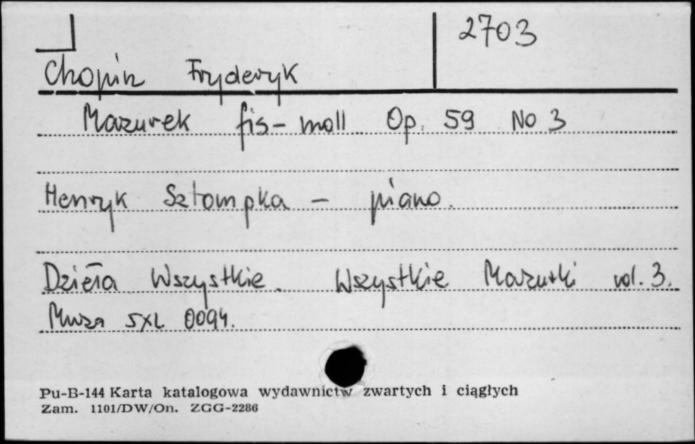 2703
Chopin Fryderyk
Mazurek fis-moll Op. 59 No 3
Henryk Sztompka - piano.
Dzieła Wszystkie. Wszystkie Mazurki vol. 3.
Muza SXL 0094.
Pu-B-144 Karta katalogowa wydawnictw zwartych i ciągłych
Zam. 1101/DW/On. ZGG-2286